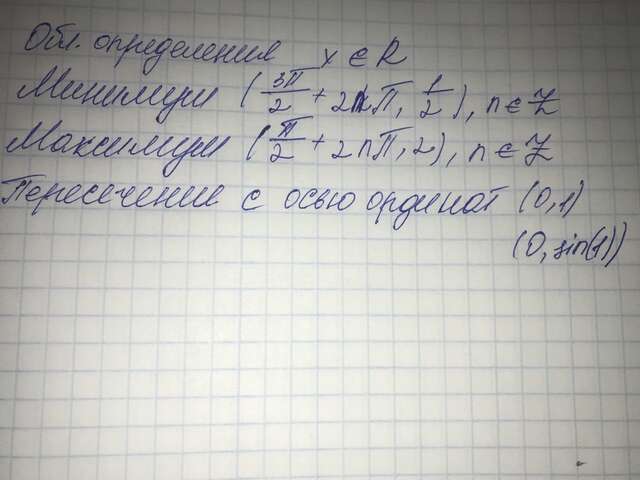 Обл. определения x ∈ R
Минимум (3П/2 + 2nП, 1/2), n ∈ Z
Максимум (П/2 + 2nП, 2), n ∈ Z
Пересечение с осью ординат (0, 1)
(0, sin(1))